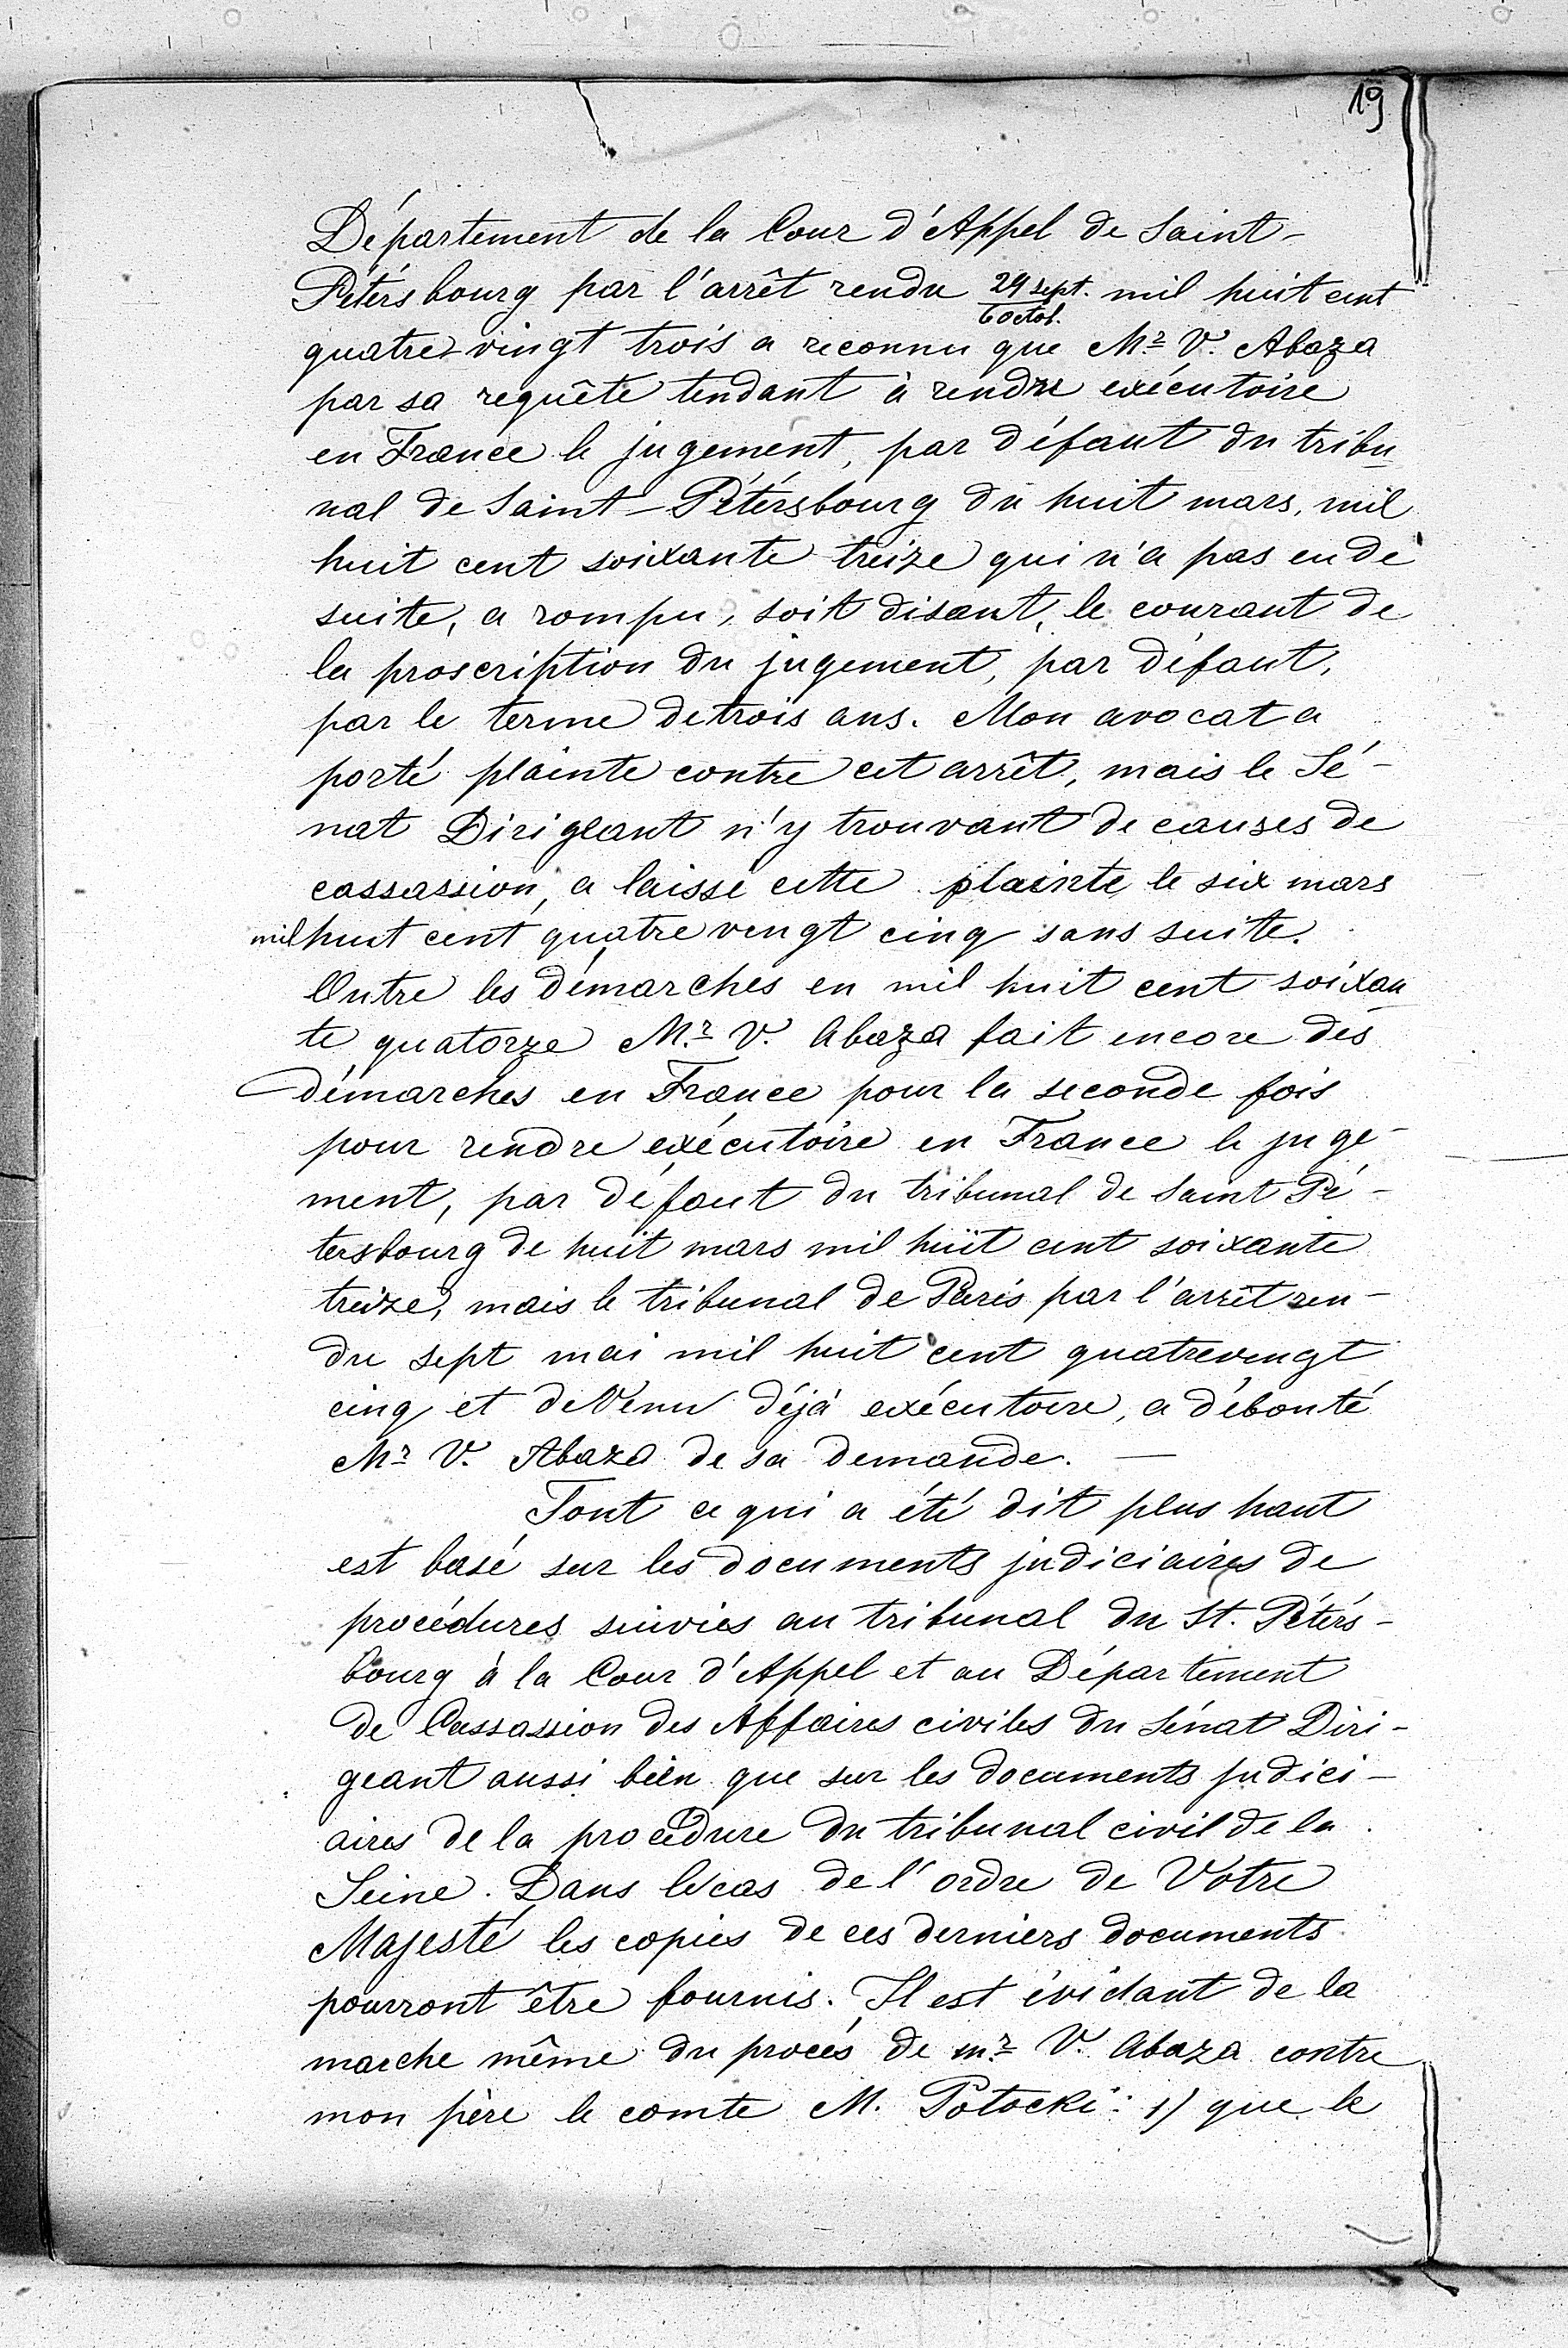 19
Département de la Cour d'Appel de Saint-
Pétérsbourg par l'arrêt rendu 29 sept./6 octob. mil huit cent
quatre-vingt trois a reconnu que Mr V. Abaza
par sa requête tendant à rendre exécutoire
en France le jugement, par défaut du tribu
nal de Saint-Pétérsbourg du huit mars, mil
huit cent soixante treize qui n'a pas eu de
suite, a rompu, soit disant, le courant de
la proscription du jugement, par défaut,
par le terme de trois ans. Mon avocat a
porté plainte contre cet arrêt, mais le Sé-
nat Dirigeant n'y trouvant de causes de
cassassion, a laissé cette plainte le six mars
mil huit cent quatre vengt cinq sans suite.
Outre les démarches en mil huit cent soixan
te quatorze Mr V. Abaza fait encore des
démarches en France pour la seconde fois
pour rendre exécutoire en France le juge-
ment, par défaut du tribunal de Saint Pé-
tersbourg de huit mars mil huit cent soixante
treize, mais le tribunal de Paris par l'arrêt ren-
du sept mai mil huit cent quatrevengt
cinq et devenu déjà exécutoire, a débouté
Mr V. Abaza de sa demande. —
Tout ce qui a été dit plus haut
est basé sur les documents judiciaires de
procédures suivies au tribunal du St. Pétérs-
bourg à la Cour d'Appel et au Département
de Cassassion des Affaires civiles du Sénat Diri-
geant aussi bien que sur les documents judici-
aires de la procédure du tribunal civil de la
Seine. Dans le cas de l'ordre de Votre
Majesté les copies de ces derniers documents
pourront être fournis. Il est évidant de la
marche même du procès de mr V. Abaza contre
mon père le comte M. Potocki: 1) que le